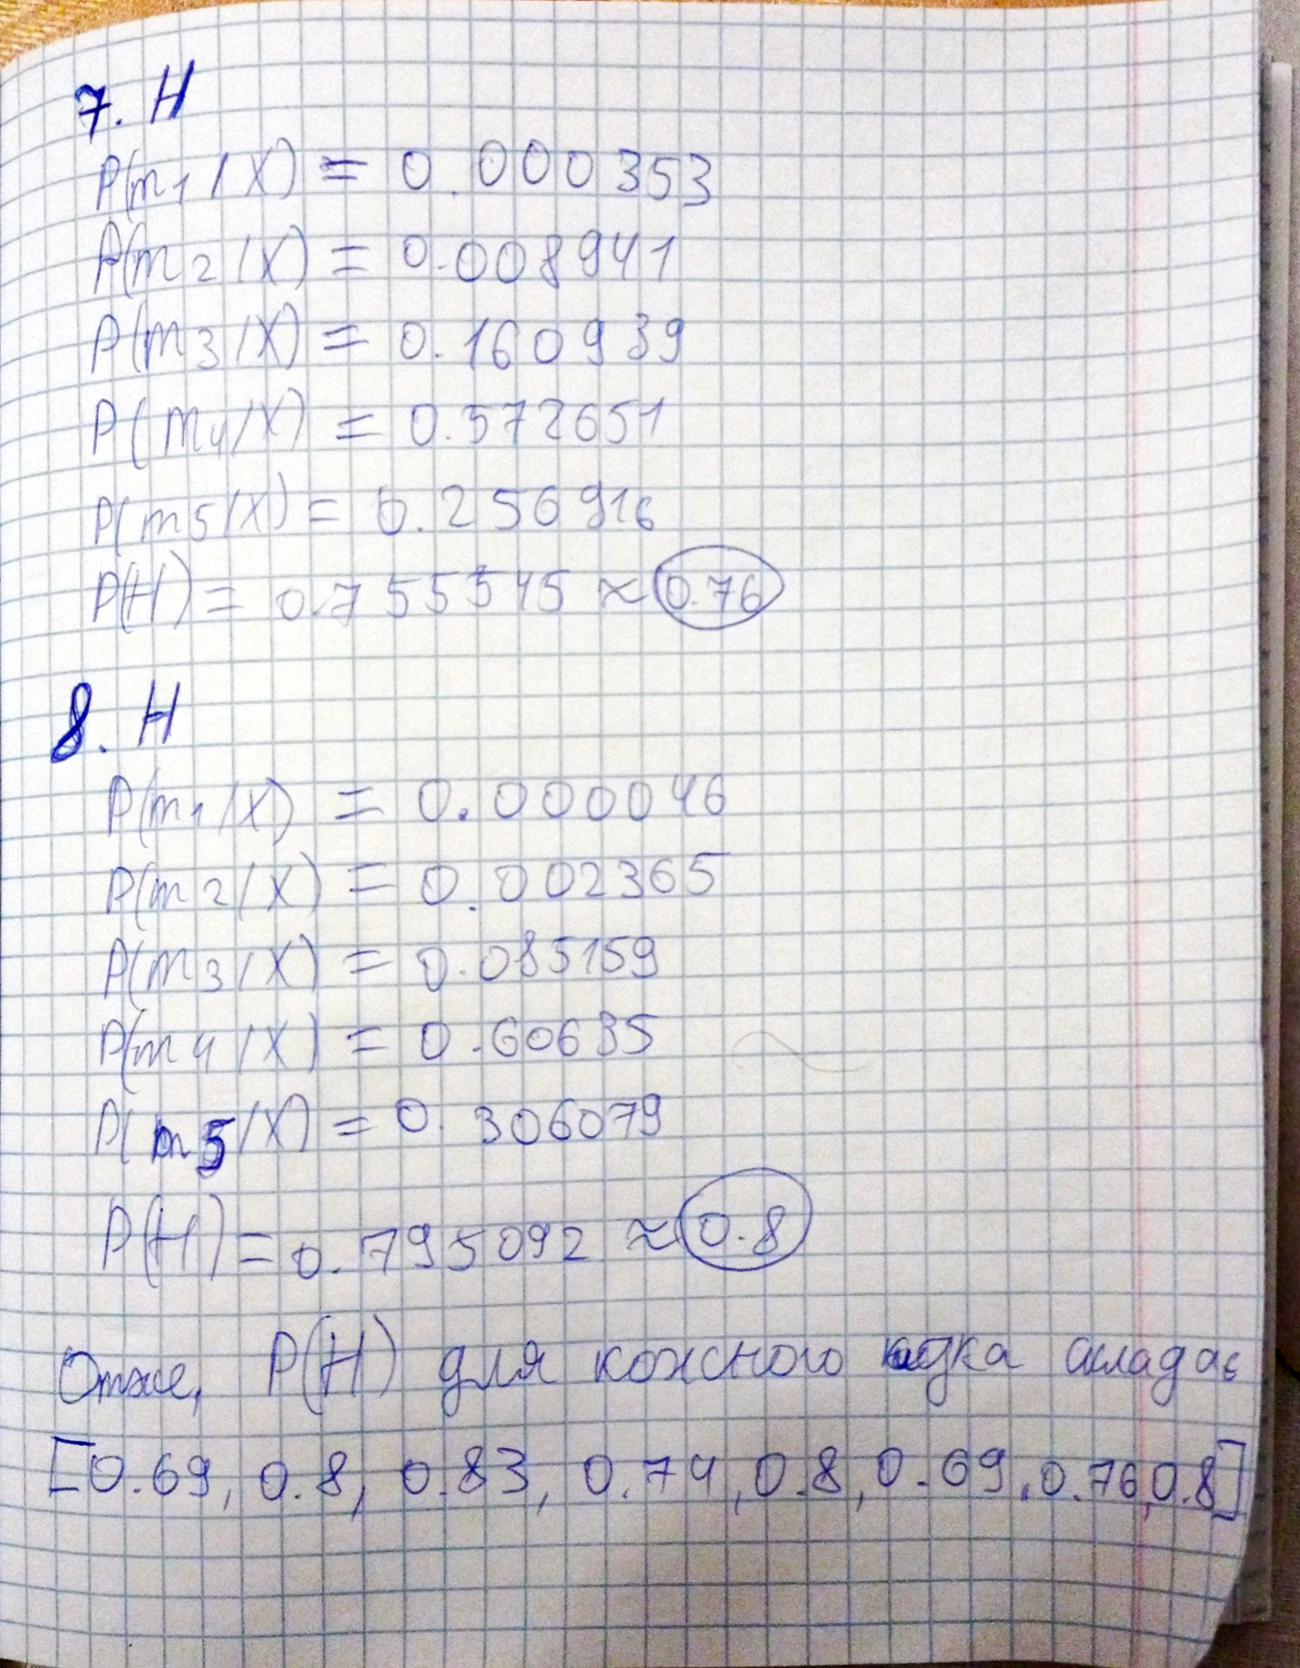 7. H
P(m1/X) = 0.000353
P(m2/X) = 0.008941
P(m3/X) = 0.160939
P(m4/X) = 0.572651
P(m5/X) = 0.256916
P(H) = 0.755545 ≈ 0.76
8. H
P(m1/X) = 0.000046
P(m2/X) = 0.002365
P(m3/X) = 0.085159
P(m4/X) = 0.60635
P(m5/X) = 0.306079
P(H) = 0.795092 ≈ 0.8
Отже, P(H) для кожного кидка складає
[0.69, 0.8, 0.83, 0.74, 0.8, 0.69, 0.76, 0.8]